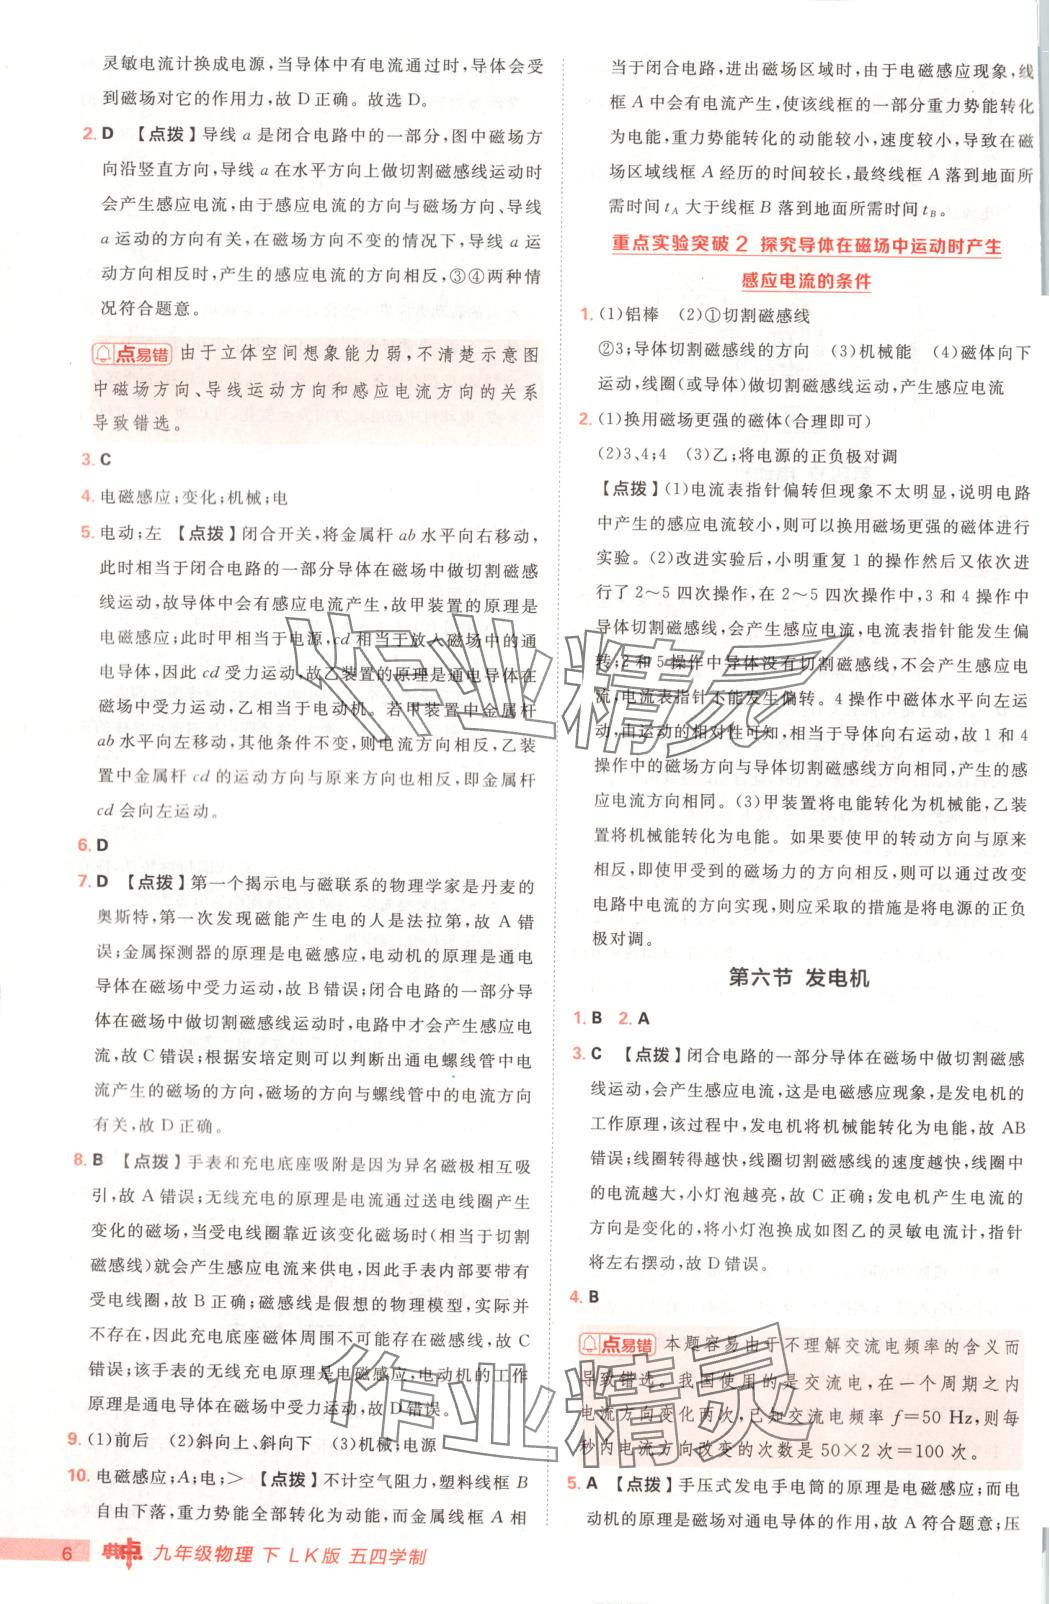 灵敏电流计换成电源,当导体中有电流通过时,导体会受
到磁场对它的作用力,故 D 正确。故选 D。
2. D 【点拨】导线 a 是闭合电路中的一部分,图中磁场方
向沿竖直方向,导线 a 在水平方向上做切割磁感线运动时
会产生感应电流,由于感应电流的方向与磁场方向、导线
a 运动的方向有关,在磁场方向不变的情况下,导线 a 运
动方向相反时,产生的感应电流的方向相反,③④两种情
况符合题意。
点易错 由于立体空间想象能力弱,不清楚示意图
中磁场方向、导线运动方向和感应电流方向的关系
导致错选。
3. C
4. 电磁感应;变化;机械;电
5. 电动;左 【点拨】闭合开关,将金属杆 ab 水平向右移动,
此时相当于闭合电路的一部分导体在磁场中做切割磁感
线运动,故导体中会有感应电流产生,故甲装置的原理是
电磁感应;此时甲相当于电源,cd 相当于放入磁场中的通
电导体,因此 cd 受力运动,故乙装置的原理是通电导体在
磁场中受力运动,乙相当于电动机。若甲装置中金属杆
ab 水平向左移动,其他条件不变,则电流方向相反,乙装
置中金属杆 cd 的运动方向与原来方向也相反,即金属杆
cd 会向左运动。
6. D
7. D 【点拨】第一个揭示电与磁联系的物理学家是丹麦的
奥斯特,第一次发现磁能产生电的人是法拉第,故 A 错
误;金属探测器的原理是电磁感应,电动机的原理是通电
导体在磁场中受力运动,故 B 错误;闭合电路的一部分导
体在磁场中做切割磁感线运动时,电路中才会产生感应电
流,故 C 错误;根据安培定则可以判断出通电螺线管中电
流产生的磁场的方向,磁场的方向与螺线管中的电流方向
有关,故 D 正确。
8. B 【点拨】手表和充电底座吸附是因为异名磁极相互吸
引,故 A 错误;无线充电的原理是电流通过送电线圈产生
变化的磁场,当受电线圈靠近该变化磁场时(相当于切割
磁感线)就会产生感应电流来供电,因此手表内部要带有
受电线圈,故 B 正确;磁感线是假想的物理模型,实际并
不存在,因此充电底座磁体周围不可能存在磁感线,故 C
错误;该手表的无线充电原理是电磁感应,电动机的工作
原理是通电导体在磁场中受力运动,故 D 错误。
9. (1)前后 (2)斜向上、斜向下 (3)机械;电源
10. 电磁感应;A;电;> 【点拨】不计空气阻力,塑料线框 B
自由下落,重力势能全部转化为动能,而金属线框 A 相
当于闭合电路,进出磁场区域时,由于电磁感应现象,线
框 A 中会有电流产生,使该线框的一部分重力势能转化
为电能,重力势能转化的动能较小,速度较小,导致在磁
场区域线框 A 经历的时间较长,最终线框 A 落到地面所
需时间 tA 大于线框 B 落到地面所需时间 tB。
重点实验突破 2 探究导体在磁场中运动时产生
感应电流的条件
1. (1)铝棒 (2)①切割磁感线
②3;导体切割磁感线的方向 (3)机械能 (4)磁体向下
运动,线圈(或导体)做切割磁感线运动,产生感应电流
2. (1)换用磁场更强的磁体(合理即可)
(2)3、4;4 (3)乙;将电源的正负极对调
【点拨】(1)电流表指针偏转但现象不太明显,说明电路
中产生的感应电流较小,则可以换用磁场更强的磁体进行
实验。(2)改进实验后,小明重复 1 的操作然后又依次进
行了 2～5 四次操作,在 2～5 四次操作中,3 和 4 操作中
导体切割磁感线,会产生感应电流,电流表指针能发生偏
转;2 和 5 操作中导体没有切割磁感线,不会产生感应电
流,电流表指针不能发生偏转。4 操作中磁体水平向左运
动,由运动的相对性可知,相当于导体向右运动,故 1 和 4
操作中的磁场方向与导体切割磁感线方向相同,产生的感
应电流方向相同。(3)甲装置将电能转化为机械能,乙装
置将机械能转化为电能。如果要使甲的转动方向与原来
相反,即使甲受到的磁场力的方向相反,则可以通过改变
电路中电流的方向实现,则应采取的措施是将电源的正负
极对调。
第六节 发电机
1. B 2. A
3. C 【点拨】闭合电路的一部分导体在磁场中做切割磁感
线运动,会产生感应电流,这是电磁感应现象,是发电机的
工作原理,该过程中,发电机将机械能转化为电能,故 AB
错误;线圈转得越快,线圈切割磁感线的速度越快,线圈中
的电流越大,小灯泡越亮,故 C 正确;发电机产生电流的
方向是变化的,将小灯泡换成如图乙的灵敏电流计,指针
将左右摆动,故 D 错误。
4. B
点易错 本题容易由于不理解交流电频率的含义而
导致错选。我国使用的是交流电,在一个周期之内
电流方向变化两次,已知交流电频率 f=50 Hz,则每
秒内电流方向改变的次数是 50×2 次=100 次。
5. A 【点拨】手压式发电手电筒的原理是电磁感应;而电
动机的原理是磁场对通电导体的作用,故 A 符合题意;压
6 典中点 九年级物理 下 LK版 五四学制
作业精灵
作业精灵